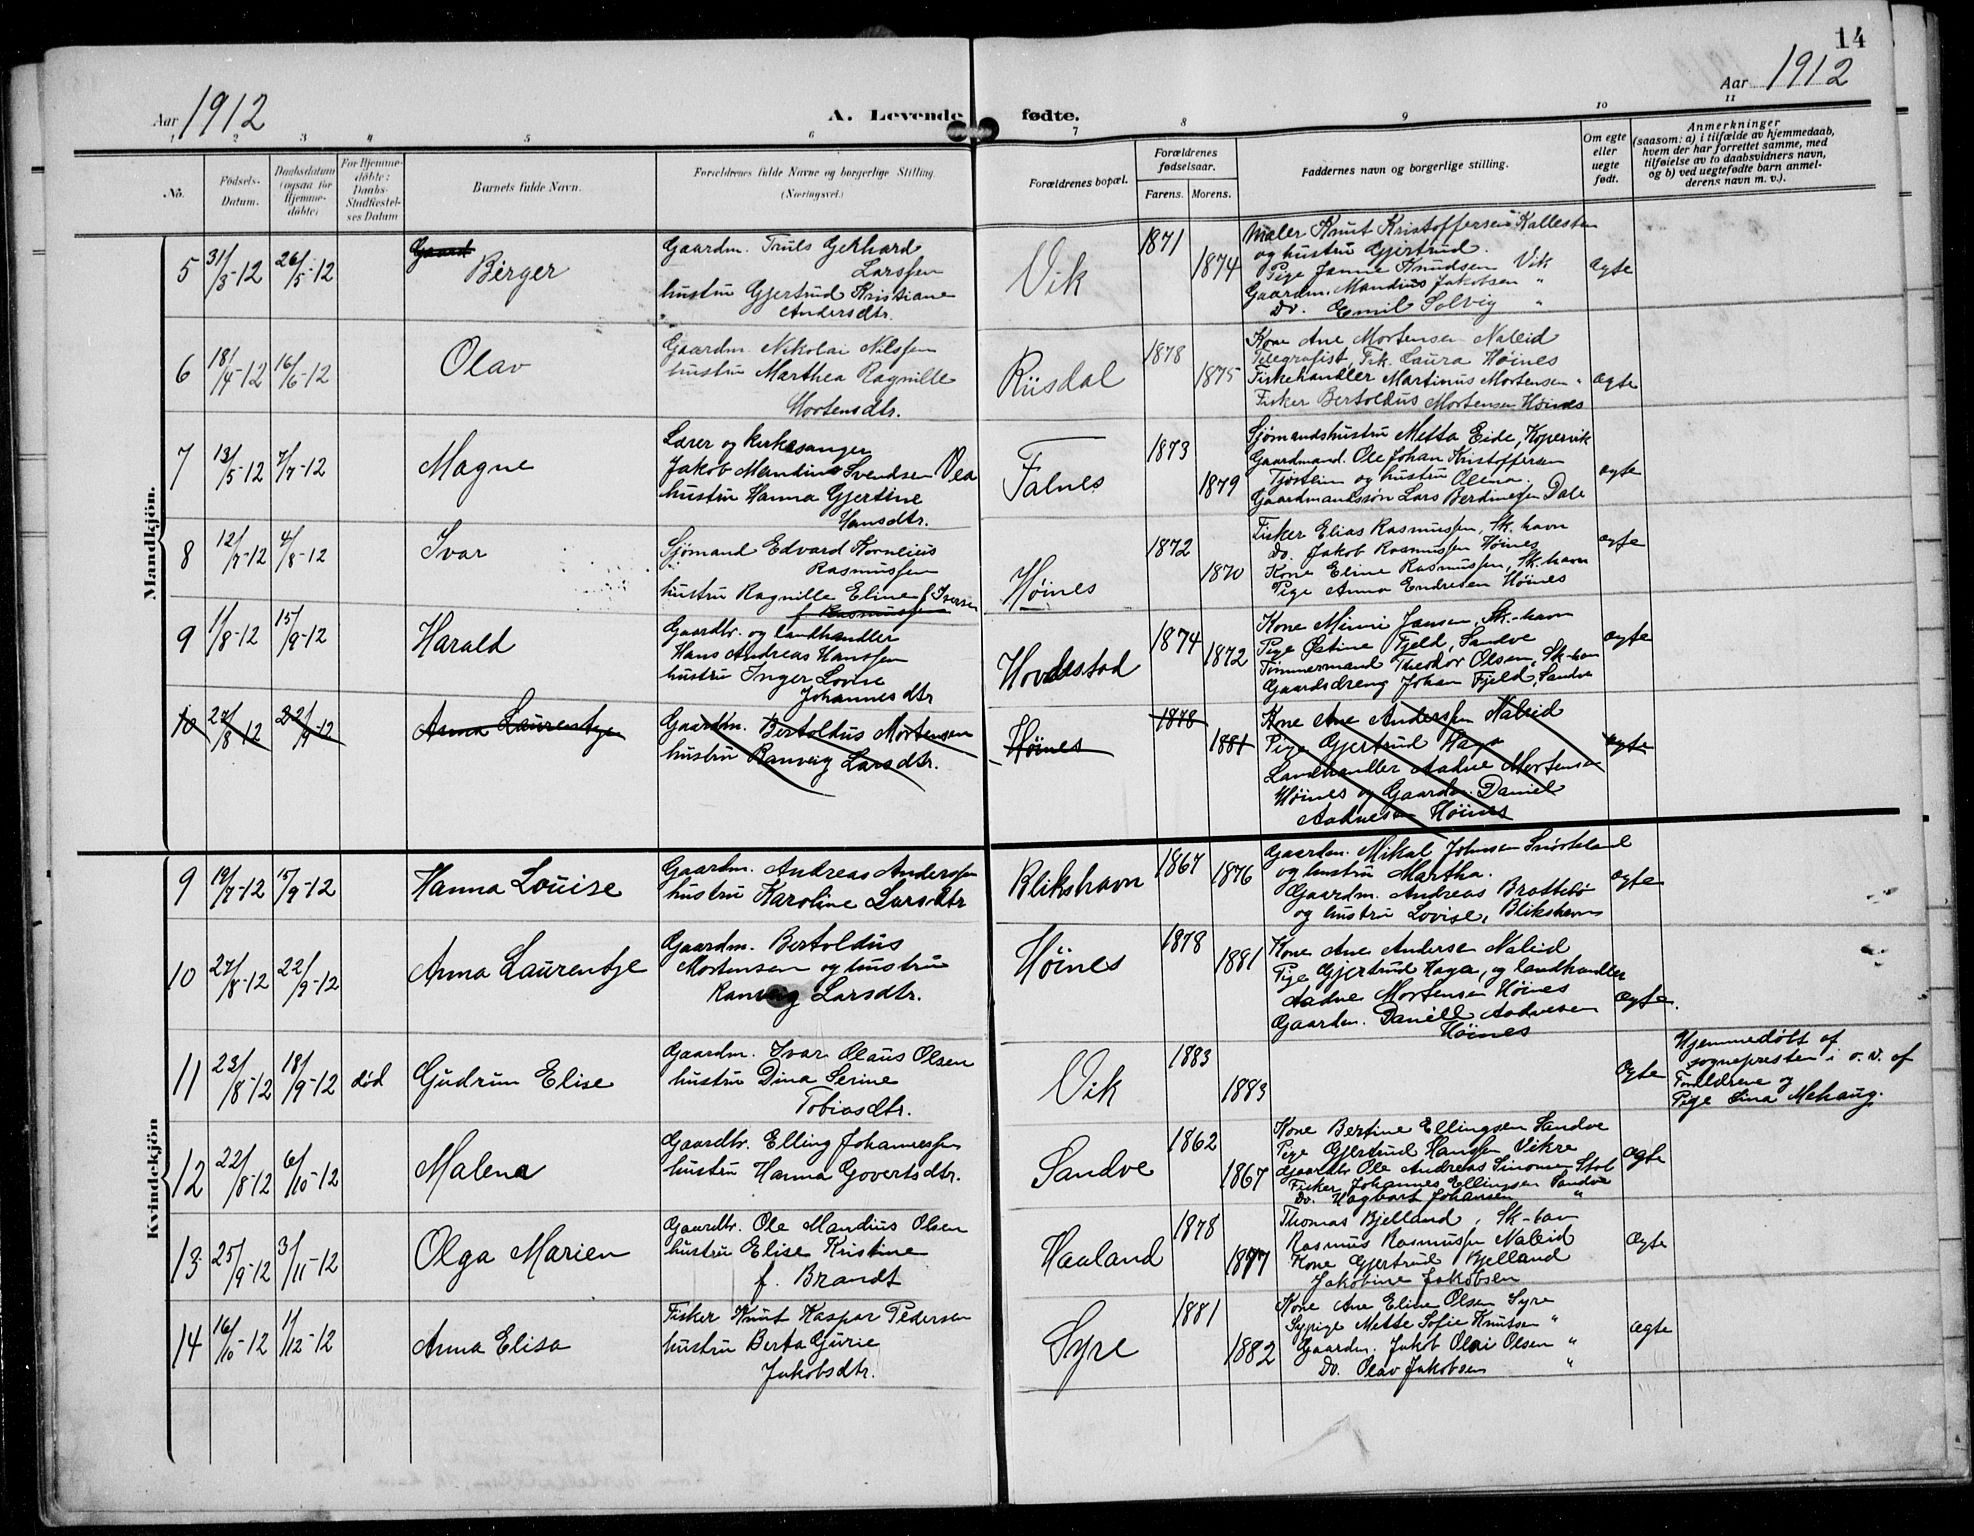 14
Aar 1912
A. Levende fødte.
Aar 1912
1 2 3 4 5 6 7 8 9 10 11
No.
Fødsels-Datum.
Daabsdatum (ogsaa for Hjemmedøbte)
For Hjemmedøbte: Daabs-Stadfæstelses Datum
Barnets fulde Navn.
Forældrenes fulde Navne og borgerlige Stilling.
(Næringsvei.)
Forældrenes bopæl.
Forældrenes fødselsaar.
Farens. Morens.
Faddernes navn og borgerlige stilling.
Om egte eller uegte født.
Anmerkninger
(saasom: a) i tilfælde av hjemmedaab,
hvem der har forrettet samme, med
tilføielse av to daabsvidners navn,
og b) ved uegtefødte barn anmel-
derens navn m. v.).
Mandkjøn.
5 31/3-12 26/5-12 Gaard
Birger
Gaardm. Truls Gerhard
Larssen
hustru Gjertrud Kristiane
Andersdtr.
Vik 1871 1874
Maler Knut Kristoffersen Kallesten
og hustru Gjertrud.
Pige Janne Knudsen Vik
Gaardm. Mandius Jakobsen "
Do. Emil Solvig "
ægte
6 18/4-12 16/6-12 Olav
Gaardm. Nikolai Nilssen
hustru Marthea Ragnille
Mortensdtr.
Riisdal 1878 1875
Kone Ane Mortensen Naleid
Telegrafist, Frk. Laura Høines
Fiskehandler Martinus Mortensen "
Fisker Bertoldus Mortensen Høines
ægte
7 13/5-12 7/7-12 Magne
Lærer og kirkesanger
Jakob Mandius Svendsen Vea
hustru Hanna Gjertine
Hansdtr.
Falnes 1873 1879
Sjømandshustru Metta Eide, Kopervik
Gaardmand. Ole Johan Kristoffersen
Tjøstlein og hustru Olena.
Gaardmandssøn Lars Berdinessen Dale
ægte
8 12/7-12 4/8-12 Ivar
Sjømand Edvard Kornelius
Rasmussen
hustru Ragnille Eline f. Iversen
f. Rasmussen
Høines 1872 1870
Fisker Elias Rasmussen, Sk.havn
Do. Jakob Rasmussen Høines
Kone Eline Rasmussen, Sk.havn
Pige Anna Endresen Høines
ægte
9 1/8-12 15/9-12 Harald
Gaardbr. og landhandler
Hans Andreas Hanssen
hustru Inger Lovise
Johannesdtr
Hovdestad 1874 1872
Kone Minni Jansen, Sk.-havn
Pige Østine Fjeld, Sandve
Tømmermand Theodor Olsen, Sk-havn
Gaardsdreng Johan Fjeld, Sandve
ægte
10 27/8-12 22/9-12 Anna Laurentze
Gaardm. Bertoldus Mortensen
hustru Ranveig Larsdtr.
Høines 1878 1881
Kone Ane Anderssen Naleid
Pige Gjertrud Haga
Landhandler Aadne Mortensen
Høines og Gaardm. Daniel
Aadnesen Høines
ægte
Kvindekjøn
9 19/7-12 15/9-12 Hanna Louise
Gaardm. Andreas Anderssen
hustru Karoline Larsdtr
Blikshavn 1867 1876
Gaardm. Mikal Johnsen Snørteland
og hustru Martha.
Gaardm. Andreas Brattebø
og hustru Lovise, Blikshavn
ægte
10 27/8-12 22/9-12 Anna Laurentze
Gaardm. Bertoldus
Mortensen og hustru
Ranveig Larsdtr.
Høines 1878 1881
Kone Ane Andersen Naleid
Pige Gjertrud Haga, og landhandler
Aadne Mortensen Høines
Gaardm. Daniell Aadnesen
Høines
ægte.
11 23/8-12 18/9-12 død Gudrun Elise
Gaardm. Ivar Olaus Olsen
hustru Dina Serine
Tobiasdtr.
Vik 1883 1883
ægte
Hjemmedøbt af
sognepresten i o. v. af
Forældrene og
Pige Sina Mehaug.
12 22/8-12 6/10-12 Malena
Gaardbr. Elling Johannessen
hustru Hanna Govertsdtr.
Sandve 1862 1867
Kone Bertine Ellingsen Sandve
Pige Gjertrud Hansen Vikre
Gaardbr Ole Andreas Simonsen Stol
Fisker Johannes Ellingsen Sandve
Do. Hagbart Johansen "
ægte
13 25/9-12 3/11-12 Olga Marien
Gaardbr. Ole Mandius Olsen
hustru Elise Kristine
f. Brandt
Haaland 1878 1877
Thomas Bjelland, Sk-havn
Rasmus Rasmussen Naleid
Kone Gjertrud Bjelland
Jakobine Jakobsen
ægte
14 16/10-12 1/12-12 Anna Elisa
Fisker Knut Kaspar Pedersen
hustru Berta Gurie
Jakobsdtr.
Syre 1881 1882
Kone Ane Eline Olsen Syre
Sypige Mette Sofie Knutsen "
Gaardm. Jakob Olai Olsen "
Do. Olav Jakobsen "
ægte